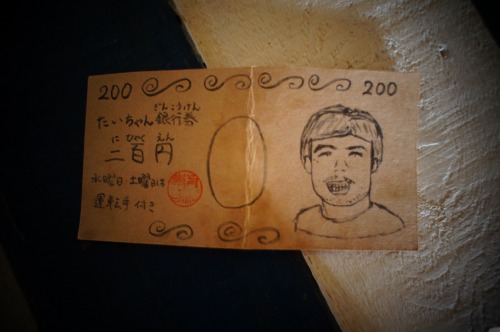 200
200
ぎんこうけん
たいちゃん銀行券
に ひゃく えん
二百円
水曜日・土曜日は
運転手付き